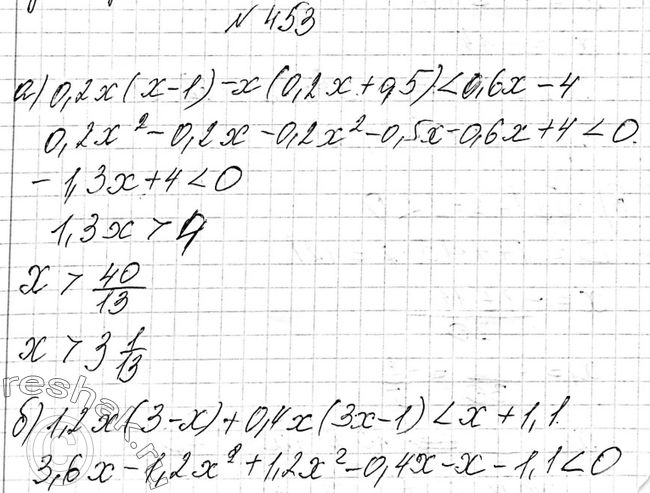 № 453
а) 0,2x(x-1)-x(0,2x+0,5)<0,6x-4
0,2x²-0,2x-0,2x²-0,5x-0,6x+4<0.
-1,3x+4<0
1,3x>4
x>40/13
x>3 1/13
б) 1,2x(3-x)+0,4x(3x-1)<x+1,1.
3,6x-1,2x²+1,2x²-0,4x-x-1,1<0
reshak.ru